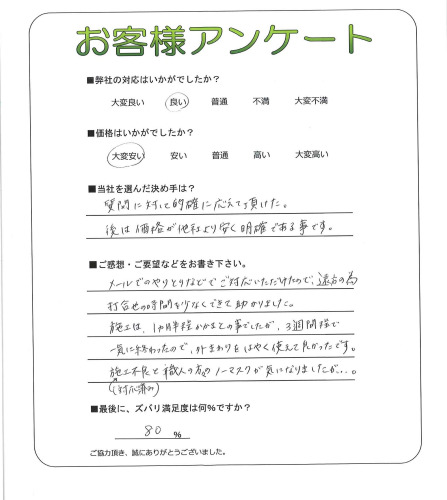 お客様アンケート
■弊社の対応はいかがでしたか？
大変良い 良い 普通 不満 大変不満
■価格はいかがでしたか？
大変安い 安い 普通 高い 大変高い
■当社を選んだ決め手は？
質問に対して的確に応えて頂けた。
後は価格が他社より安く明確である事です。
■ご感想・ご要望などをお書き下さい。
メールでのやりとりなどでご対応いただけたので、遠方の為
打合せの時間を少なくできて助かりました。
施工は、1ヵ月半程かかるとの事でしたが、3週間程で
一気に終わったので、外まわりをはやく使えて良かったです。
施工不良と職人の方のノーマスクが気になりましたが…。
(対応済み)
■最後に、ズバリ満足度は何%ですか？
80 %
ご協力頂き、誠にありがとうございました。